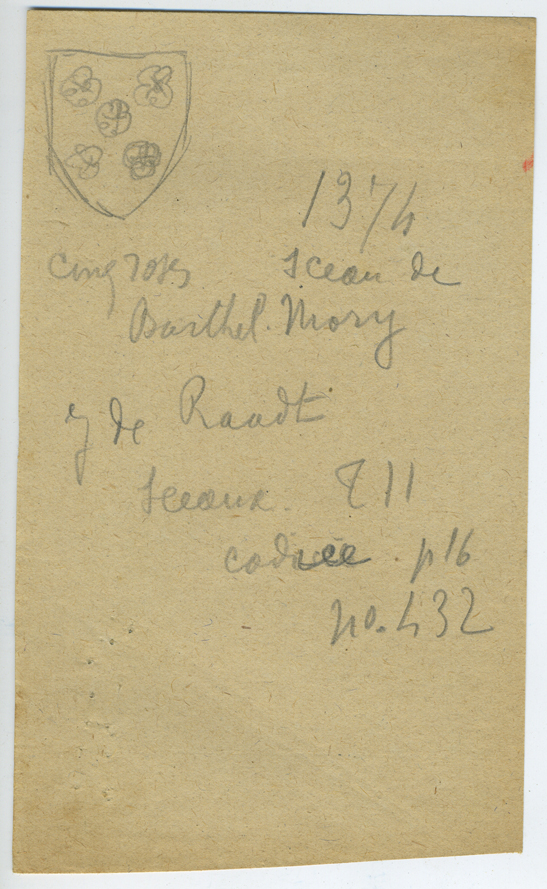 1374
Cinq roses sceau de
Barthel. Mory
J de Raadt
sceaux. T II
p 16
no. 432